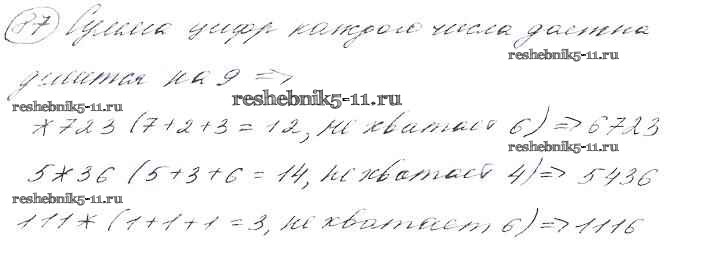 87 Сумма цифр каждого числа должна
reshebnik5-11.ru
делиться на 9 =>
reshebnik5-11.ru
reshebnik5-11.ru
*723 (7+2+3=12, не хватает 6) => 6723
reshebnik5-11.ru
5*36 (5+3+6=14, не хватает 4) => 5436
reshebnik5-11.ru
111* (1+1+1=3, не хватает 6) => 1116